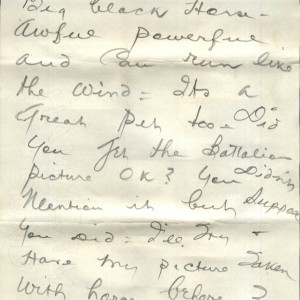 Big black Horse-
Awful powerful
and Can run like
the Wind= Its a
Great pet too- Did
You get the Battalion
picture OK? You Didn't
Mention it but Suppose
You did= I'll try &
Have my picture Taken
With horse before I